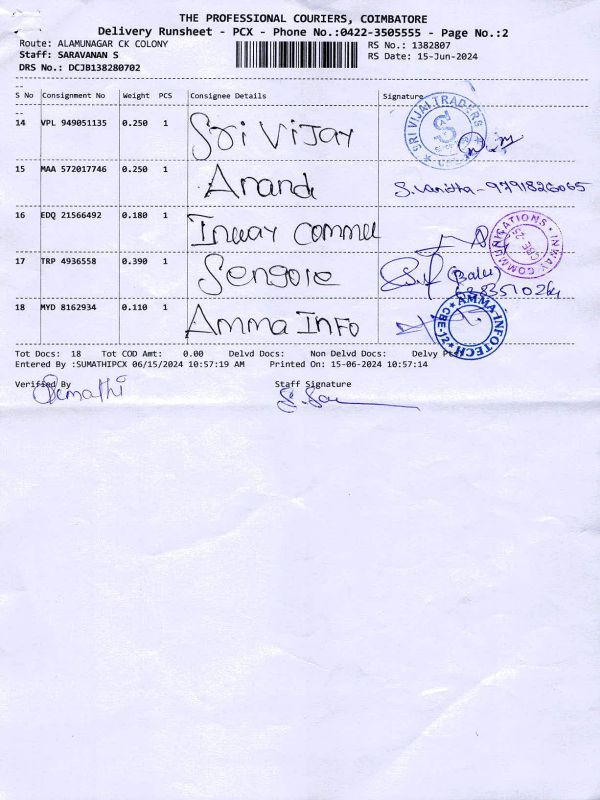 THE PROFESSIONAL COURIERS, COIMBATORE
Delivery Runsheet - PCX - Phone No.:0422-3505555 - Page No.:2
Route: ALAMUNAGAR CK COLONY
RS No.: 1382807
Staff: SARAVANAN S
RS Date: 15-Jun-2024
DRS No.: DCJB138280702
S No Consignment No Weight PCS Consignee Details Signature
14 VPL 949051135 0.250 1 Sri Vijay
SRI VIJAI TRADERS
15 MAA 572017746 0.250 1 Anand S. Vanitha - 9791826065
16 EDQ 21566492 0.180 1 Inway Commu
INWAY COMMUNICATIONS
17 TRP 4936558 0.390 1 Sengole (Balu)
18 MYD 8162934 0.110 1 Amma Info
AMMA INFOTECH CBE-12
Tot Docs: 18 Tot COD Amt: 0.00 Delvd Docs: Non Delvd Docs: Delvy
Entered By :SUMATHIPCX 06/15/2024 10:57:19 AM Printed On: 15-06-2024 10:57:14
Verified By Staff Signature
Sumathi